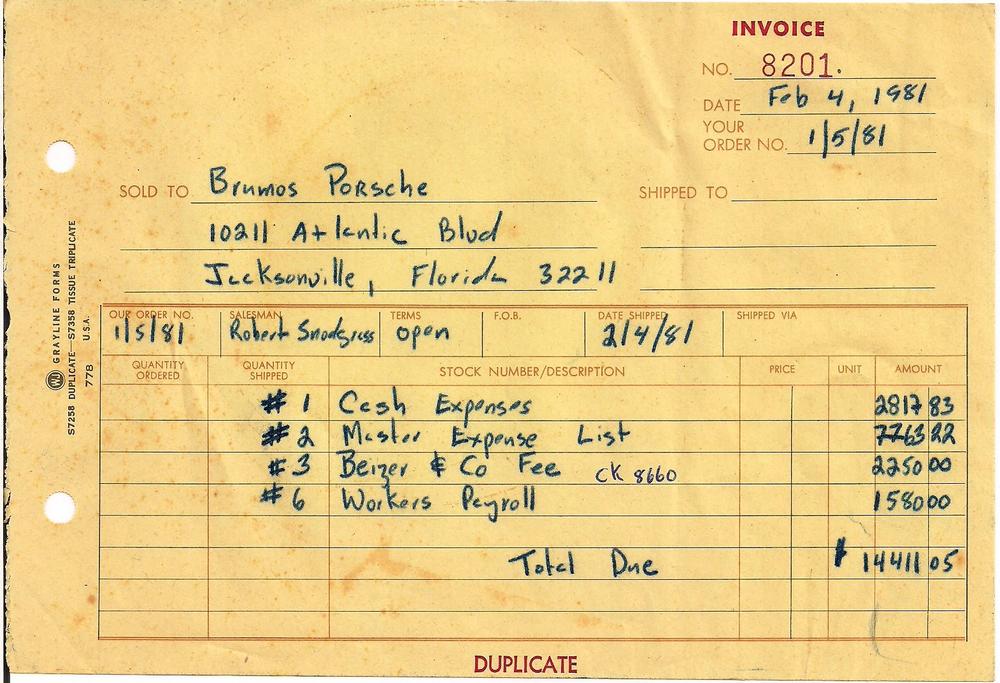 INVOICE
NO. 8201.
DATE Feb 4, 1981
YOUR ORDER NO. 1/5/81
SOLD TO Brumos Porsche
SHIPPED TO
10211 Atlantic Blvd
Jacksonville, Florida 32211
OUR ORDER NO. SALESMAN TERMS F.O.B. DATE SHIPPED SHIPPED VIA
1/5/81 Robert Snodgrass open 2/4/81
QUANTITY ORDERED QUANTITY SHIPPED STOCK NUMBER/DESCRIPTION PRICE UNIT AMOUNT
# 1 Cash Expenses 2817 83
# 2 Master Expense List 7763 22
# 3 Beizer & Co Fee CK 8660 2250 00
# 6 Workers Payroll 1580 00
Total Due $ 14411 05
DUPLICATE
WJ GRAYLINE FORMS
S7258 DUPLICATE- S7358 TISSUE TRIPLICATE
778 U.S.A.